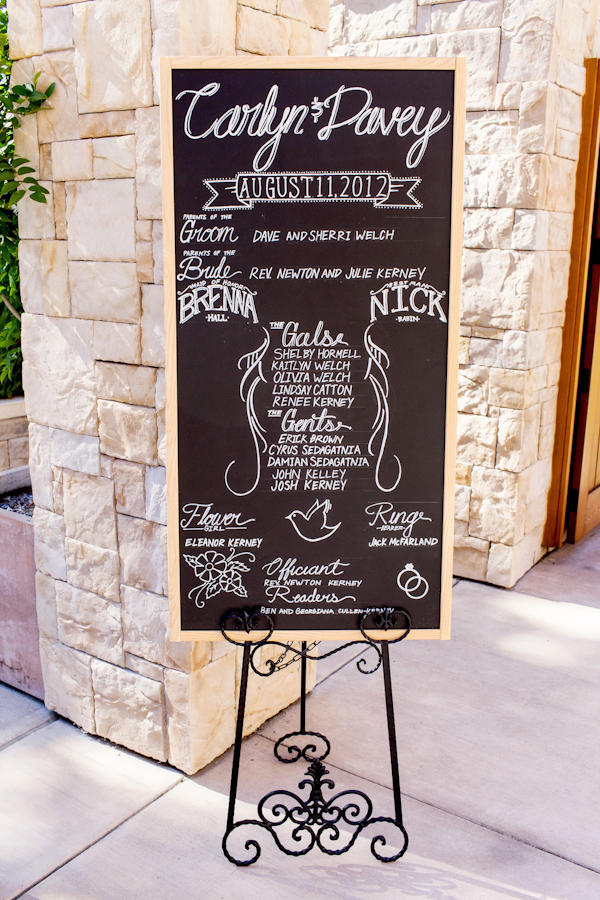 Carlyn & Davey
AUGUST 11, 2012
PARENTS OF THE
Groom DAVE AND SHERRI WELCH
PARENTS OF THE
Bride REV. NEWTON AND JULIE KERNEY
MAID OF HONOR
BRENNA
-HALL-
BEST MAN
NICK
-BABIN-
THE Gals
SHELBY HORMELL
KAITLYN WELCH
OLIVIA WELCH
LINDSAY CATTON
RENEE KERNEY
THE Gents
ERICK BROWN
CYRUS SEDAGATNIA
DAMIAN SEDAGATNIA
JOHN KELLEY
JOSH KERNEY
Flower
GIRL
ELEANOR KERNEY
Ring
-BEARER-
JACK McFARLAND
Officiant
REV. NEWTON KERNEY
Readers
BEN AND GEORGIANA CULLEN-KERNEY